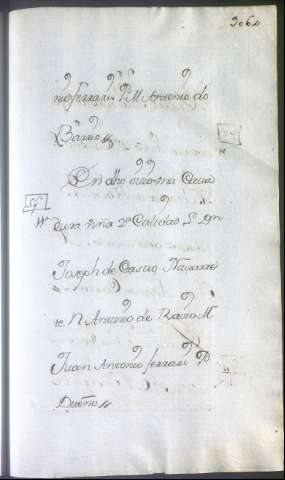 306
nio ferrari P. M. Antonio do
Barrio
En dho sitio una Cava
dura viña 2ª Calidad L. Dn
Joseph de Castro Navarre
te N. Antonio de Razo M.
Juan Antonio ferrari P.
Dueño